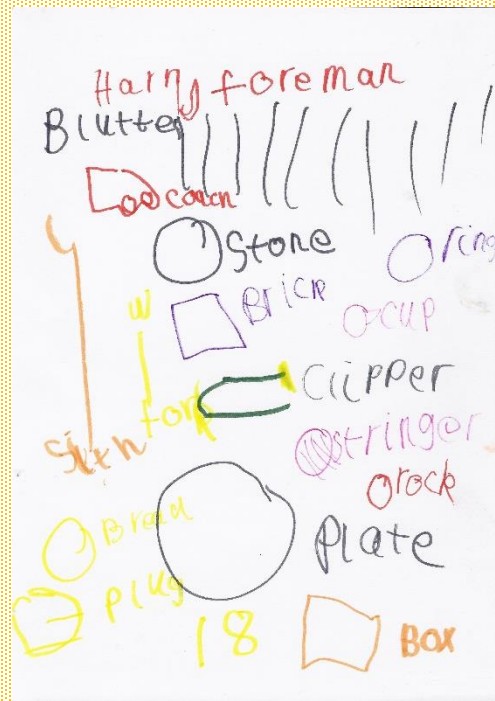 Harry foreman
Blutter
coach
Stone
ring
Brick
cup
fork
Clipper
stringer
rock
Bread
Plate
plug
18
Box